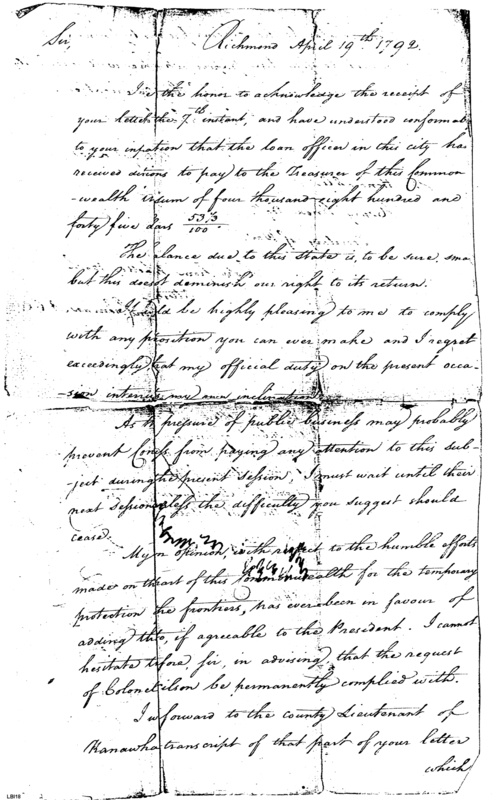 Sir,
Richmond April 19th 1792.
I the honor to acknowledge the receipt of
your letter the 7th instant, and have understood conformab
to your in mation that the loan officer in this city has
received di ions to pay to the Treasurer of this Common
-wealth sum of four thousand eight hundred and
forty five d ars 53 3/100.
The alance due to this state is, to be sure, sma
but this does t deminish our right to its return.
It ld be highly pleasing to me to comply
with any pr osition you can ever make and I regret
exceedingly at my official duty on the present occa-
sion inter my own inclination.
As th pressure of public business may probably
prevent Con ss from paying any attention to this sub-
-ject during the present session, I must wait until their
next session less the difficulty you suggest should
cease.
My n opinion, with respect to the humble efforts
made on the art of this Commonwealth for the temporary
protection the frontiers, has ever been in favour of
adding th to, if agreeable to the President. I cannot
hesitate t efore, sir, in advising that the request
of Colonel ilson be permanently complied with.
I w forward to the county Lieutenant of
Kanawha transcript of that part of your letter
which
LBI18